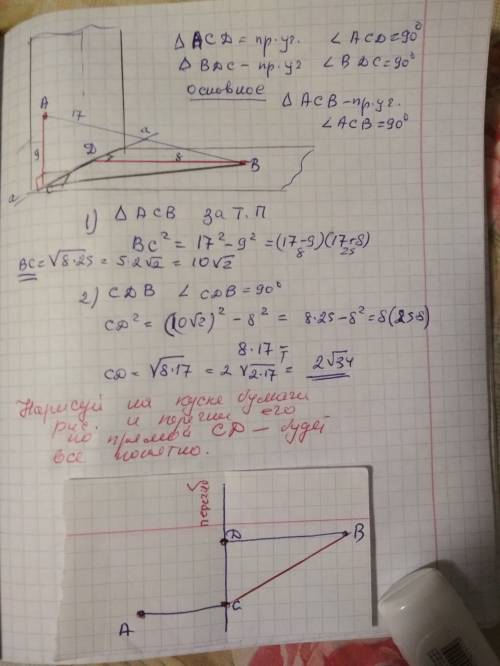 △ ACD = пр.уг. ∠ ACD = 90°
△ BDC - пр.уг ∠ BDC = 90°
основное
△ ACB - пр.уг.
∠ ACB = 90°
A
17
a
9
D
8
B
a
C
1) △ ACB за Т.П
BC² = 17² - 9² = (17-9)(17+8)
8 25
BC = √8·25 = 5·2√2 = 10√2
2) CDB ∠ CDB = 90°
CD² = (10√2)² - 8² = 8·25 - 8² = 8(25-8)
8·17 =
CD = √8·17 = 2 √2·17 = 2√34
Нарисуй на куске бумаги
рис. и перегни его
по прямой CD - будет
все понятно.
D
B
C
A